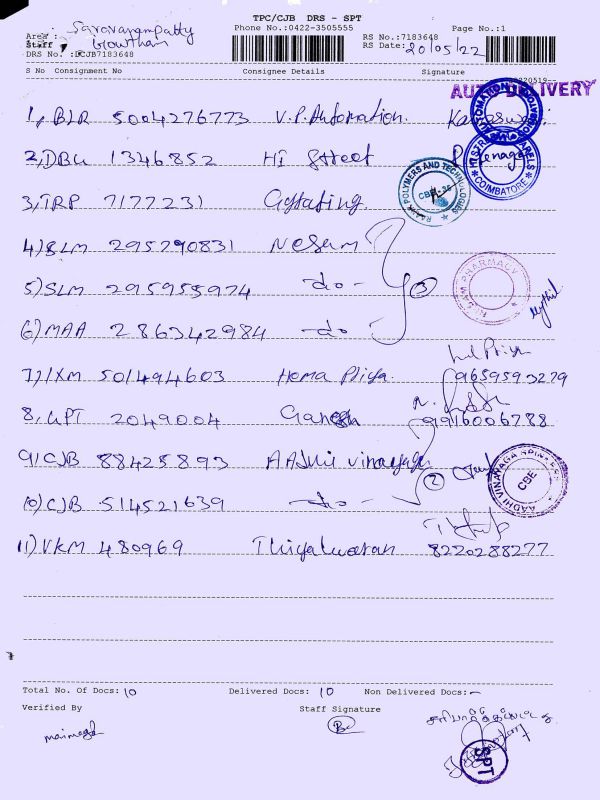 TPC/CJB DRS - SPT
Phone No.:0422-3505555
Page No.:1
Area : Saravanampatty
Staff : Gowtham
DRS No. :DCJB7183648
RS No.:7183648
RS Date: 20/05/22
S No Consignment No Consignee Details Signature
AUTO DELIVERY
1, BLR 5004276773 V.P. Automation.
2, DBL 1346852 Hi Street
COIMBATORE
3, TRP 7177231
RAJA POLYMERS AND TECHNOLOGIES
4) SLM 295790831 Nesam
5) SLM 295955974 -do- 3
PHARMACY
6) MAA 286342984 -do-
7) IXM 501494603 Hema Priya
9659593279
8, GPT 2049004 Ganesh
9916006788
9) CJB 88425893 AADhi Vinayaga
AADHI VINAYAGA SPINNERS CBE
10) CJB 514521639 -do- 2
11) VKM 480969 Thiyalwaran 8220288277
Total No. Of Docs: 10 Delivered Docs: 10 Non Delivered Docs: -
Verified By Staff Signature
SPT